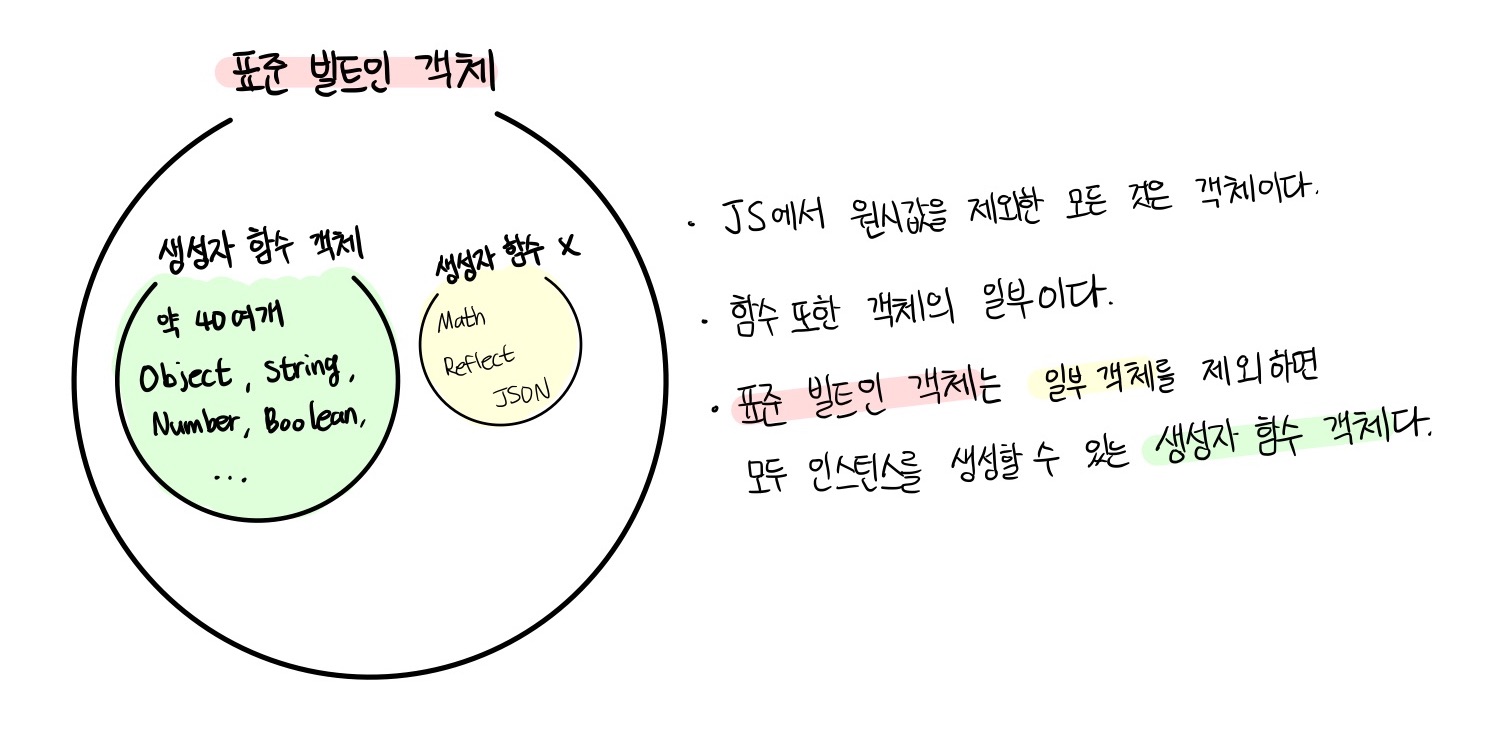 표준 빌트인 객체
생성자 함수 객체
약 40여개
Object, String,
Number, Boolean,
...
생성자 함수 X
Math
Reflect
JSON
· JS에서 원시값을 제외한 모든 것은 객체이다.
· 함수 또한 객체의 일부이다.
· 표준 빌트인 객체는 일부 객체를 제외하면
모두 인스턴스를 생성할 수 있는 생성자 함수 객체다.